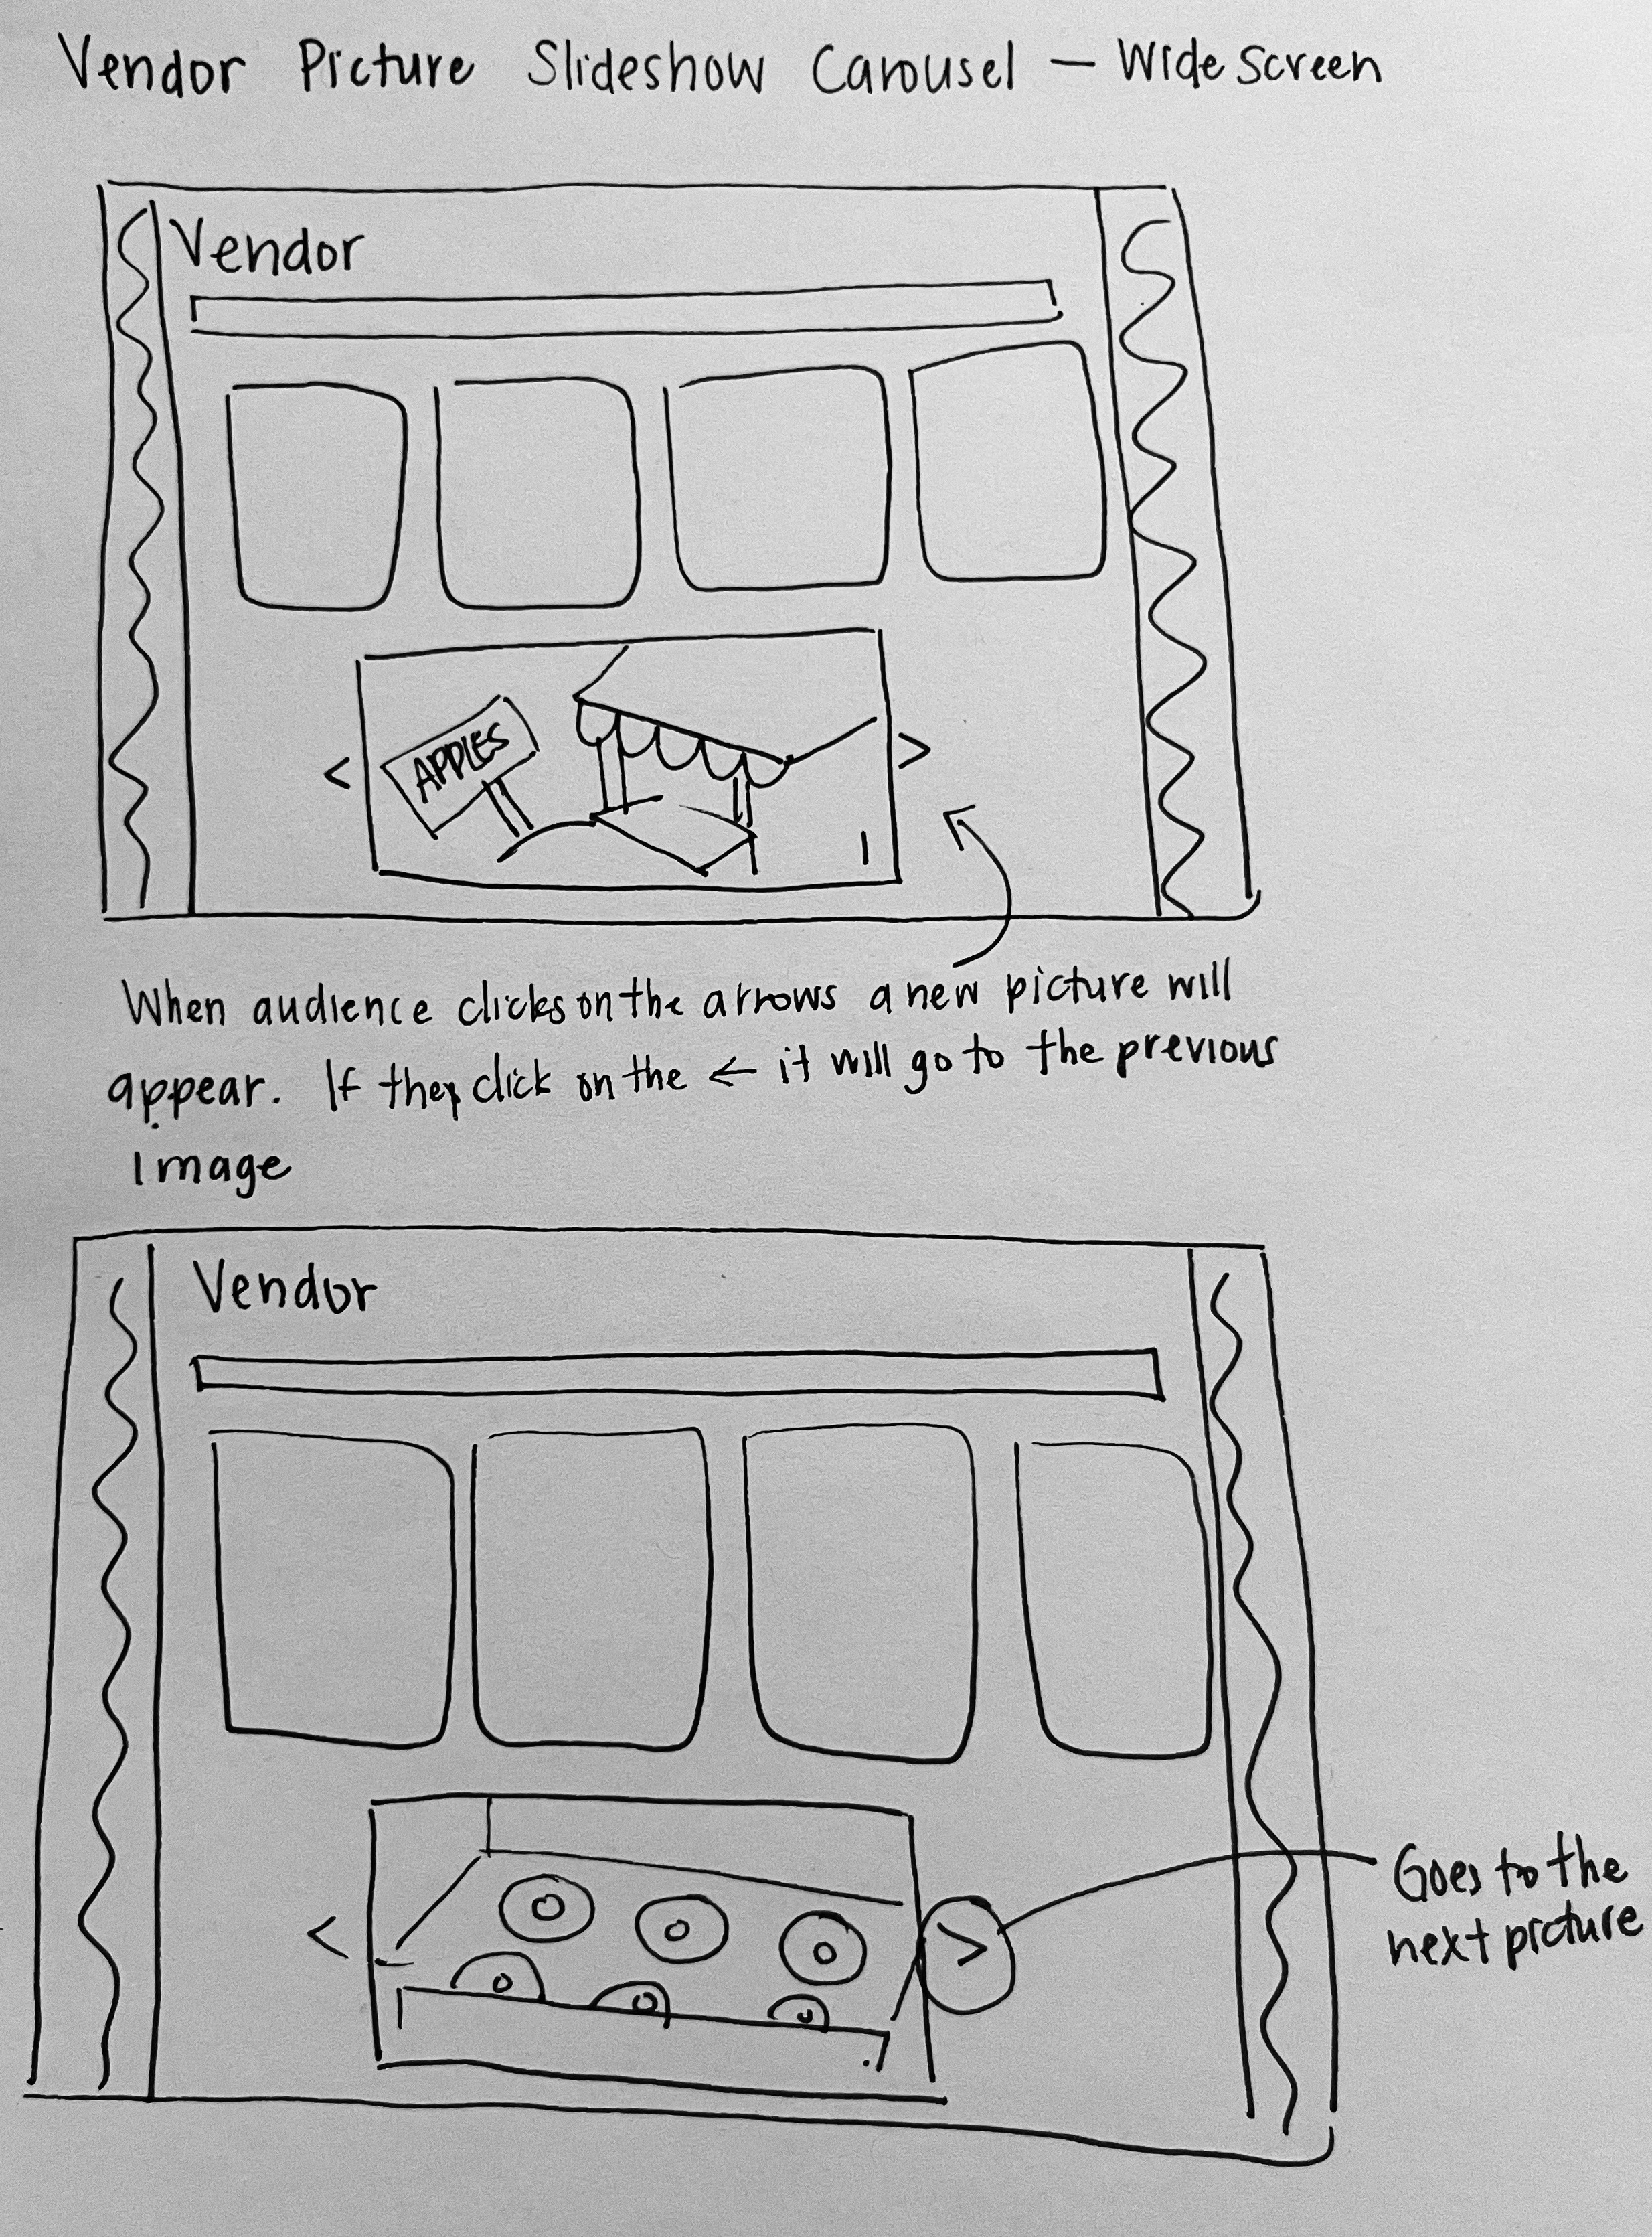 Vendor Picture Slideshow Carousel — Wide Screen
Vendor
APPLES
<
>
When audience clicks on the arrows a new picture will
appear. If they click on the ← it will go to the previous
Image
Vendor
<
>
Goes to the
next picture